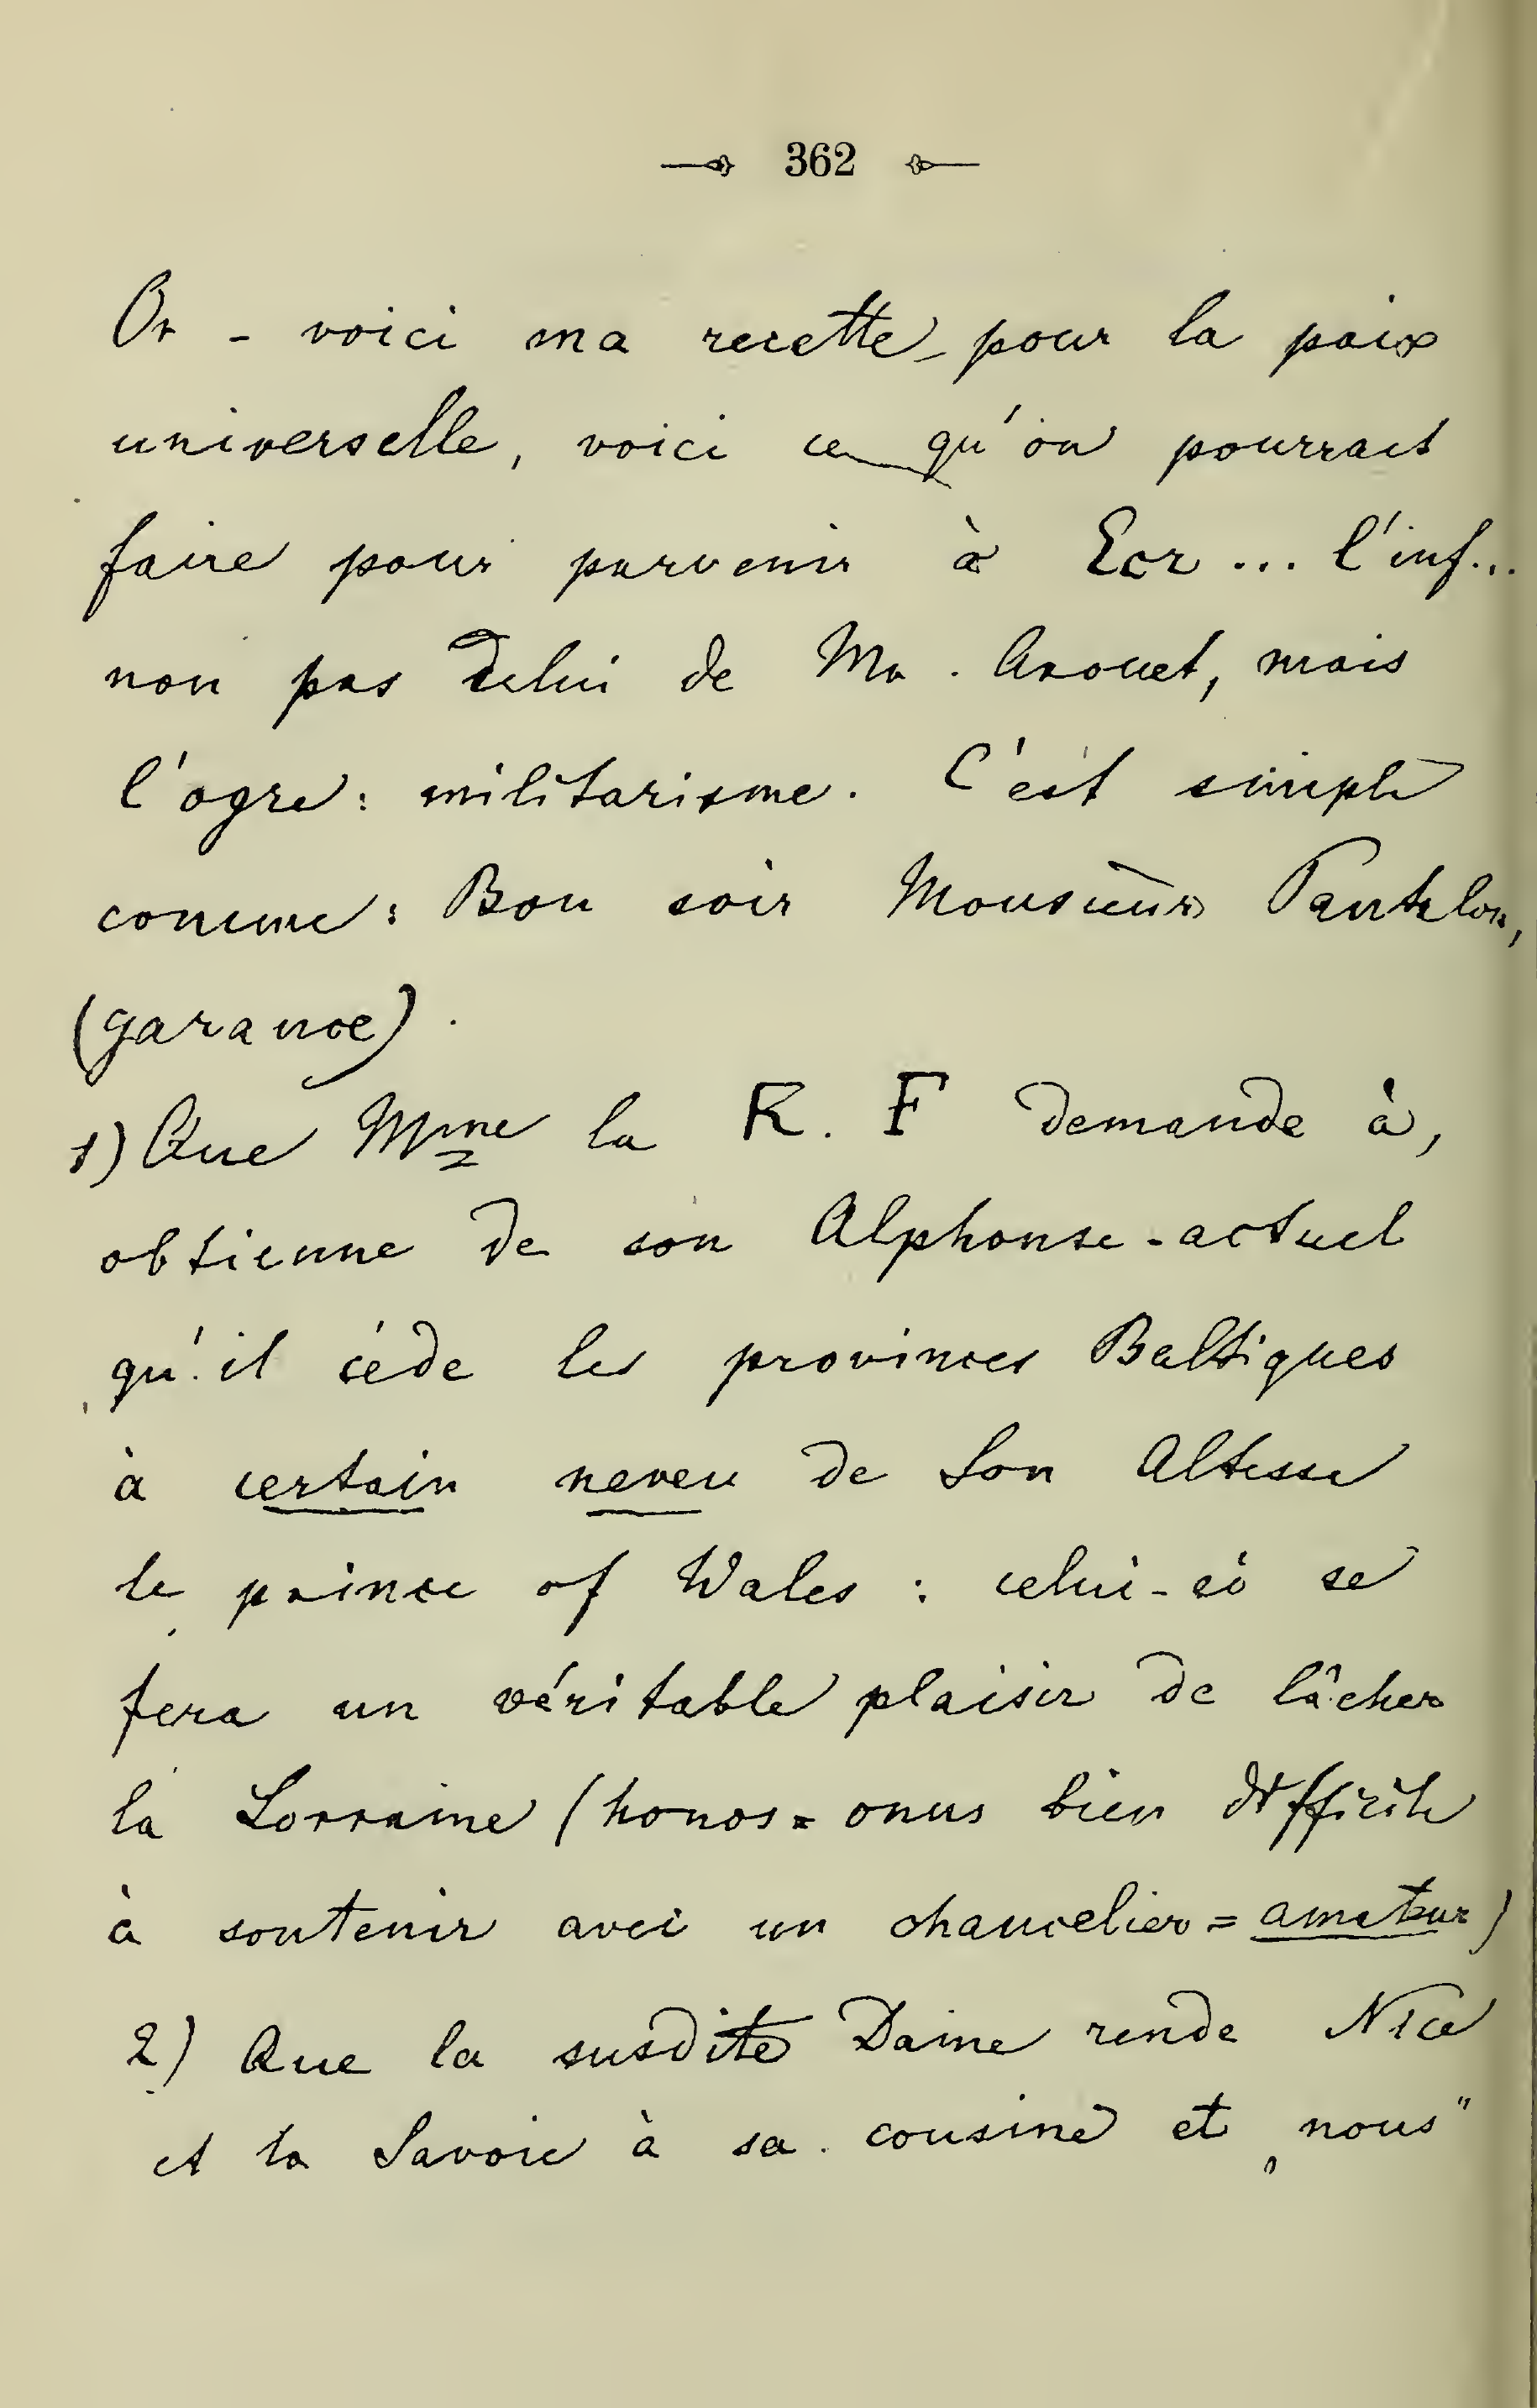 362
Or - voici ma recette pour la paix
universelle, voici ce qu'on pourrait
faire pour parvenir à Ecr ... l'inf...
non pas celui de Mr. Arouet, mais
l'ogre: militarisme. C'est simple
comme: Bon soir Monsieur Pantalon,
(garance).
1) Que Mme la R. F demande à,
obtienne de son Alphonse-actuel
qu'il cède les provinces Baltiques
à certain neveu de Son Altesse
le prince of Wales : celui-ci se
fera un véritable plaisir de lâcher
la Lorraine (honos = onus bien difficile
à soutenir avec un chancelier = amateur)
2) Que la susdite Dame rende Nice
et la Savoie à sa cousine et „nous"